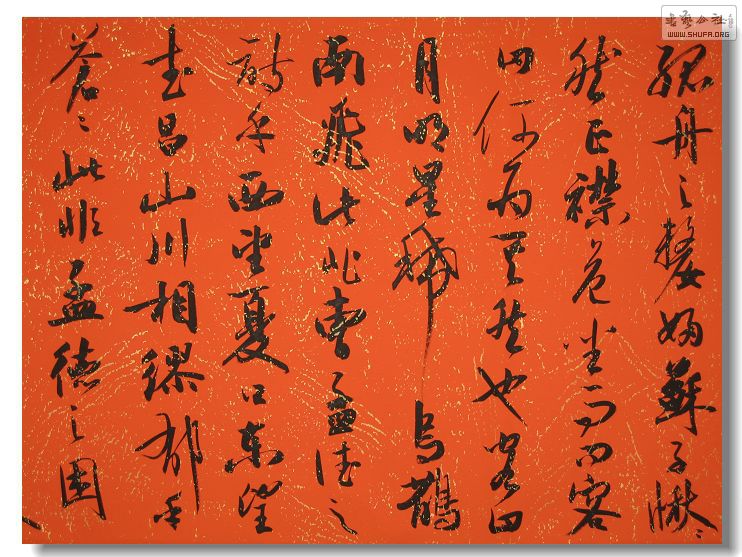 孤舟之嫠婦蘇子愀〻
然正襟危坐而問客
曰何為其然也客曰
月明星稀烏鵲
南飛此非曹孟德之
詩乎西望夏口東望
武昌山川相繆郁乎
蒼〻此非孟德之困
書藝公社
WWW.SHUFA.ORG